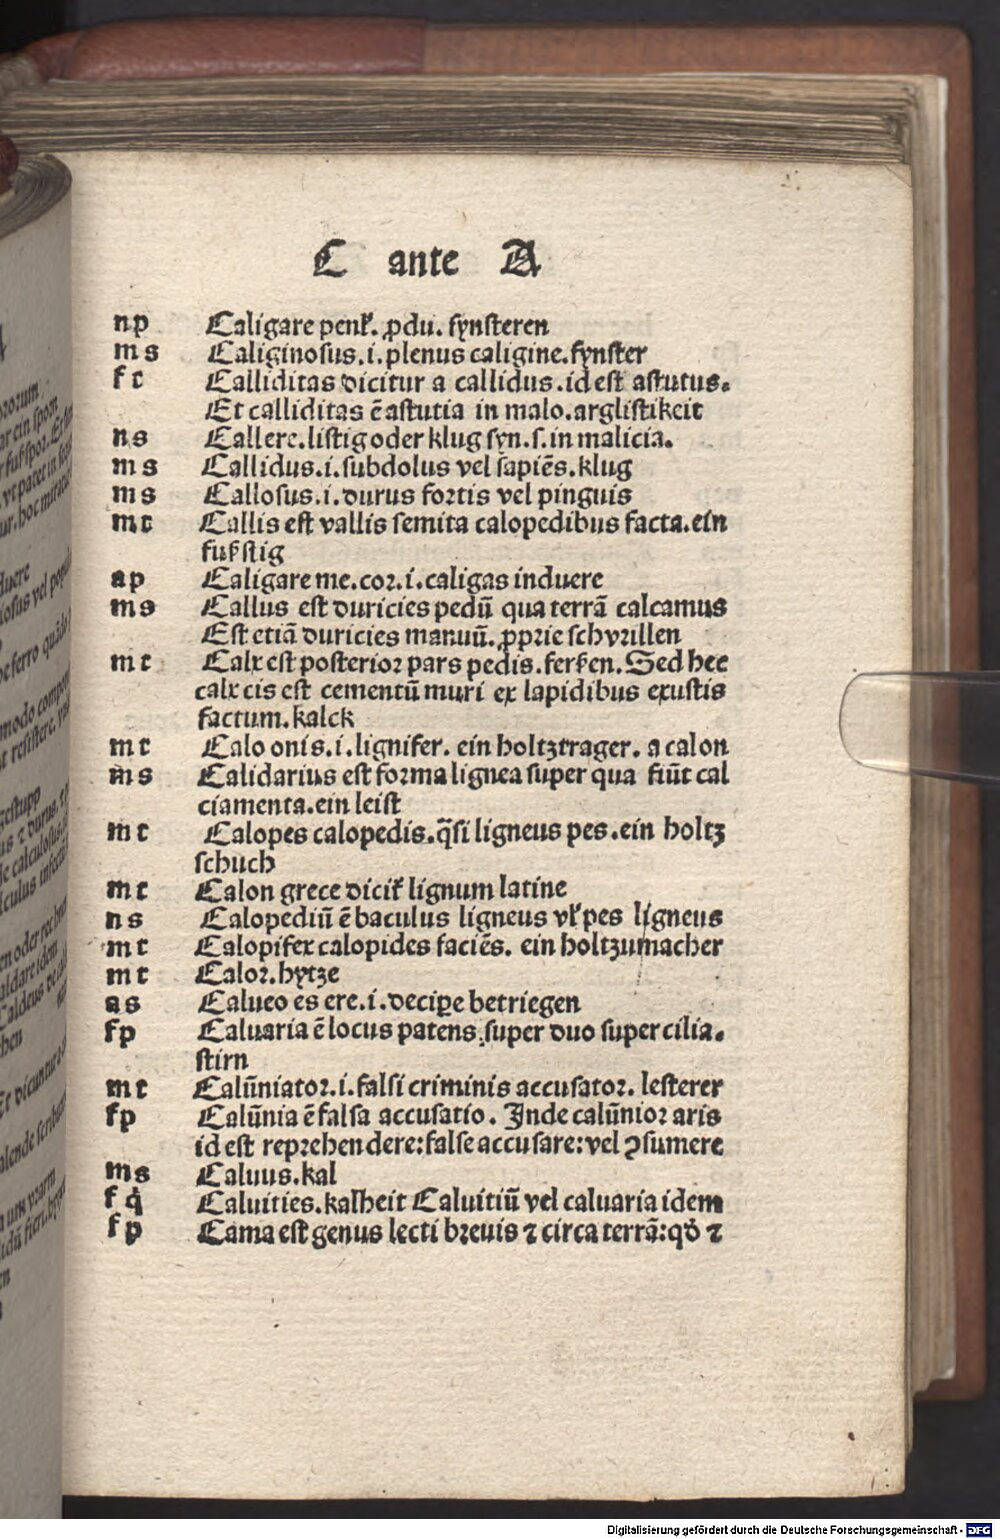 C ante A
np Caligare penl̕. ꝓdu. fynsteren
ms Caliginosus.i.plenus caligine.fynster
ft Calliditas dicitur a callidus.id est astutus.
Et calliditas ē astutia in malo.arglistikeit
ns Callere.listig oder klug syn.s.in malicia.
ms Callidus.i.subdolus vel sapiēs.klug
ms Callosus.i.durus fortis vel pinguis
mt Callis est vallis semita calopedibus facta.ein
fußstig
ap Caligare me.cor.i.caligas induere
ms Callus est duricies pedū qua terrā calcamus
Est etiā duricies manuū.ꝓprie schvrillen
mt Calx est posterior pars pedis.ferßen.Sed hec
calx cis est cementū muri ex lapidibus exustis
factum.kalck
mt Calo onis.i.lignifer. ein holtztrager. a calon
ms Calidarius est forma lignea super qua fiūt cal
ciamenta.ein leist
mt Calopes calopedis.q̄si ligneus pes.ein holtz
schuch
mt Calon grece dicit᷑ lignum latine
ns Calopediū ē baculus ligneus vl̕ pes ligneus
mt Calopifex calopides faciēs. ein holtzumacher
mt Calor.hytze
as Calueo es ere.i.decipe betriegen
fp Caluaria ē locus patens super duo supercilia.
stirn
mt Calūniator.i.falsi criminis accusator. lesterer
fp Calūnia ē falsa accusatio. Inde calūnior aris
id est reprehendere:false accusare:vel ꝯsumere
ms Caluus.kal
f q̇ Caluities.kalheit Caluitiū vel caluaria idem
fp Cama est genus lecti breuis ⁊ circa terrā:qđ ⁊
Digitalisierung gefördert durch die Deutsche Forschungsgemeinschaft - DFG